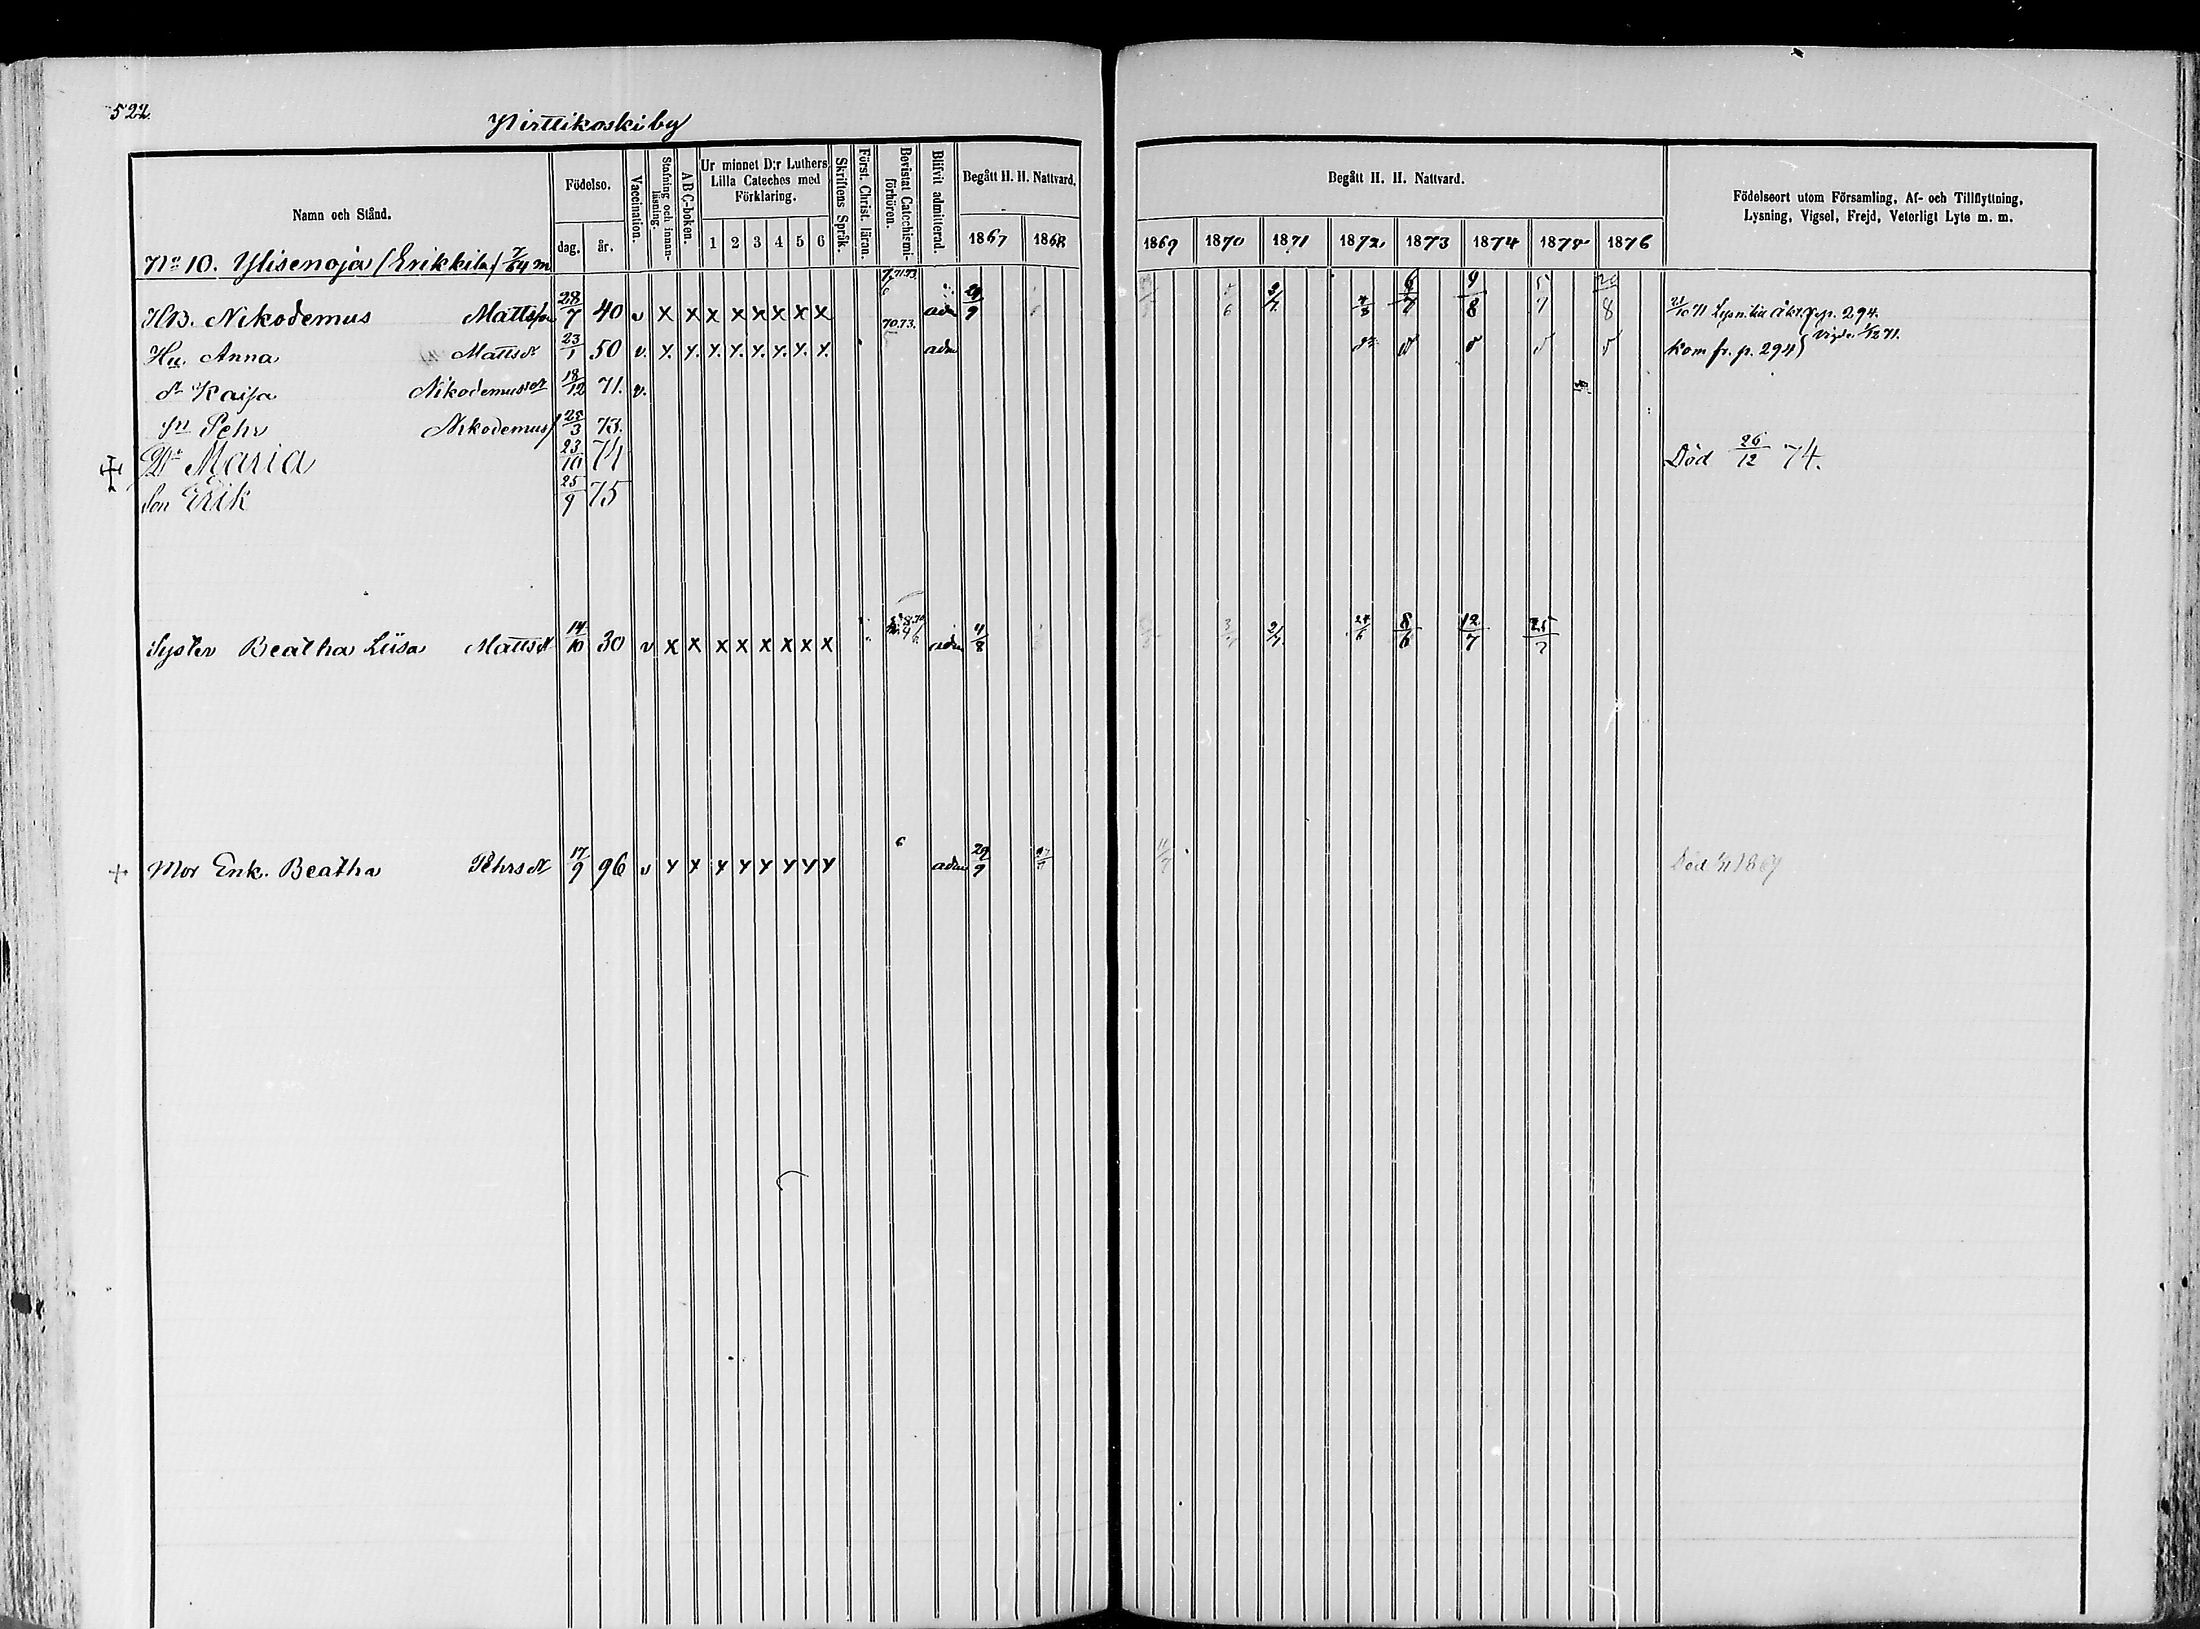 522.
Pirttikoski by
Namn och Stånd.
Födelse.
dag.
år.
Vaccination.
Stafning och innanläsning.
ABC-boken.
Ur minnet D:r Luthers Lilla Cateches med Förklaring.
1 2 3 4 5 6
Skriftens Språk.
Först. Christ. läran.
Bevistat Catechismiförhören.
Blifvit admitterad.
Begått H. H. Nattvard.
1867 1868
Begått H. H. Nattvard.
1869 1870 1871 1872 1873 1874 1875 1876
Födelseort utom Församling, Af- och Tillflyttning,
Lysning, Vigsel, Frejd, Veterligt Lyte m. m.
No 10. Ylisenoja (Erikkila) 7/64 m
HB. Nikodemus Mattsson 28/7 40 v x x x x x x x x adm 29/9 2/7 6/7 9/8 5/7 8 p. 294.
Hu. Anna Mattsdr 23/1 50 v. x. x. x. x. x. x. x. x. 70.73. adm kom fr. p. 294 Vigde 71.
dr Kaisa Nikodemusdr 18/12 71. v.
sn Pehr Nikodemuss 25/3 73.
Dr Maria 23/10 74 Död 26/12 74.
Son Erik 25/9 75
Syster Beatha Liisa Mattsdr 14/10 30 v x x x x x x x x adm 11/8 3/7 2/7 24/6 8/6 12/7 25/7
Mor Enk. Beatha Pehrsdr 17/9 96 v x x x x x x x x 6 adm 29/9 11/7 Död 1869